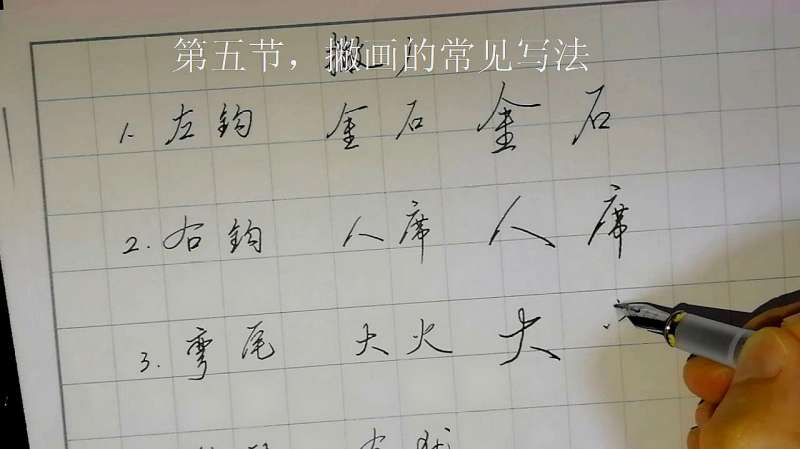 第五节，撇画的常见写法
1. 左钩 金石 金 石
2. 右钩 人席 人 席
3. 弯尾 大火 大